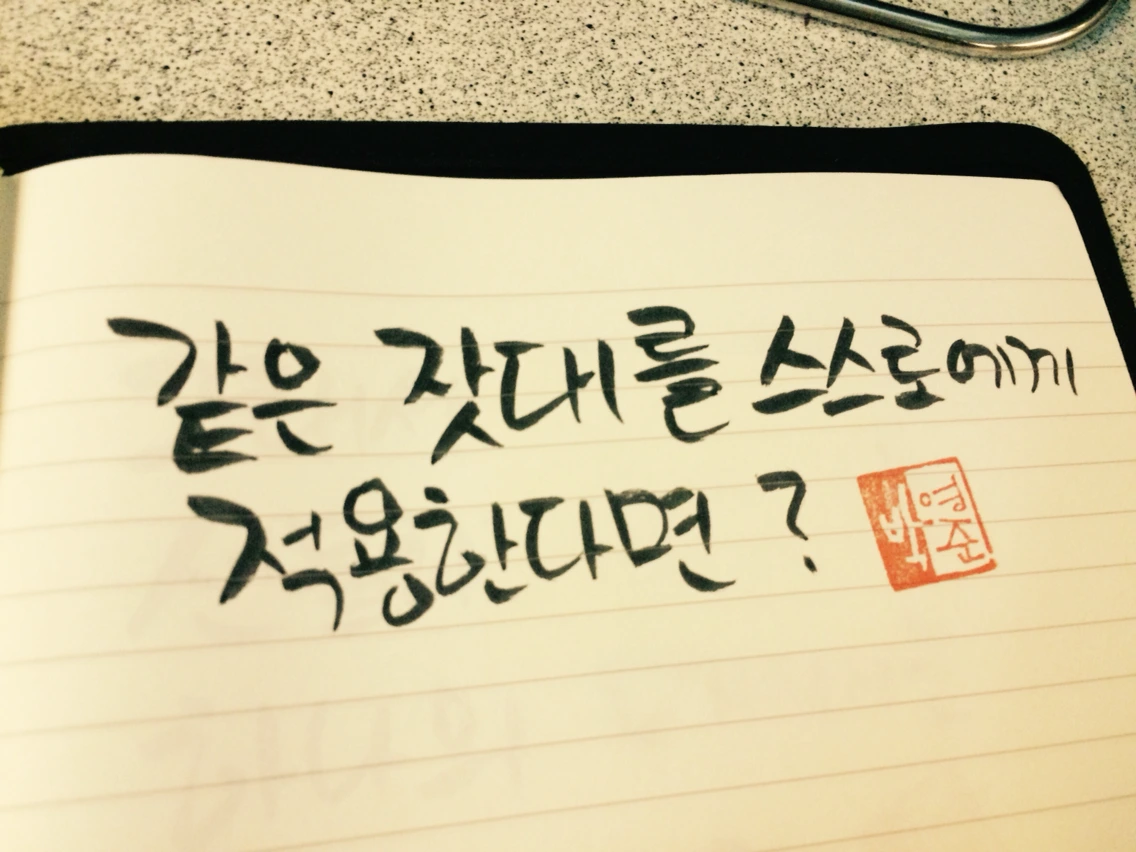 같은 잣대를 스스로에게
적용한다면?